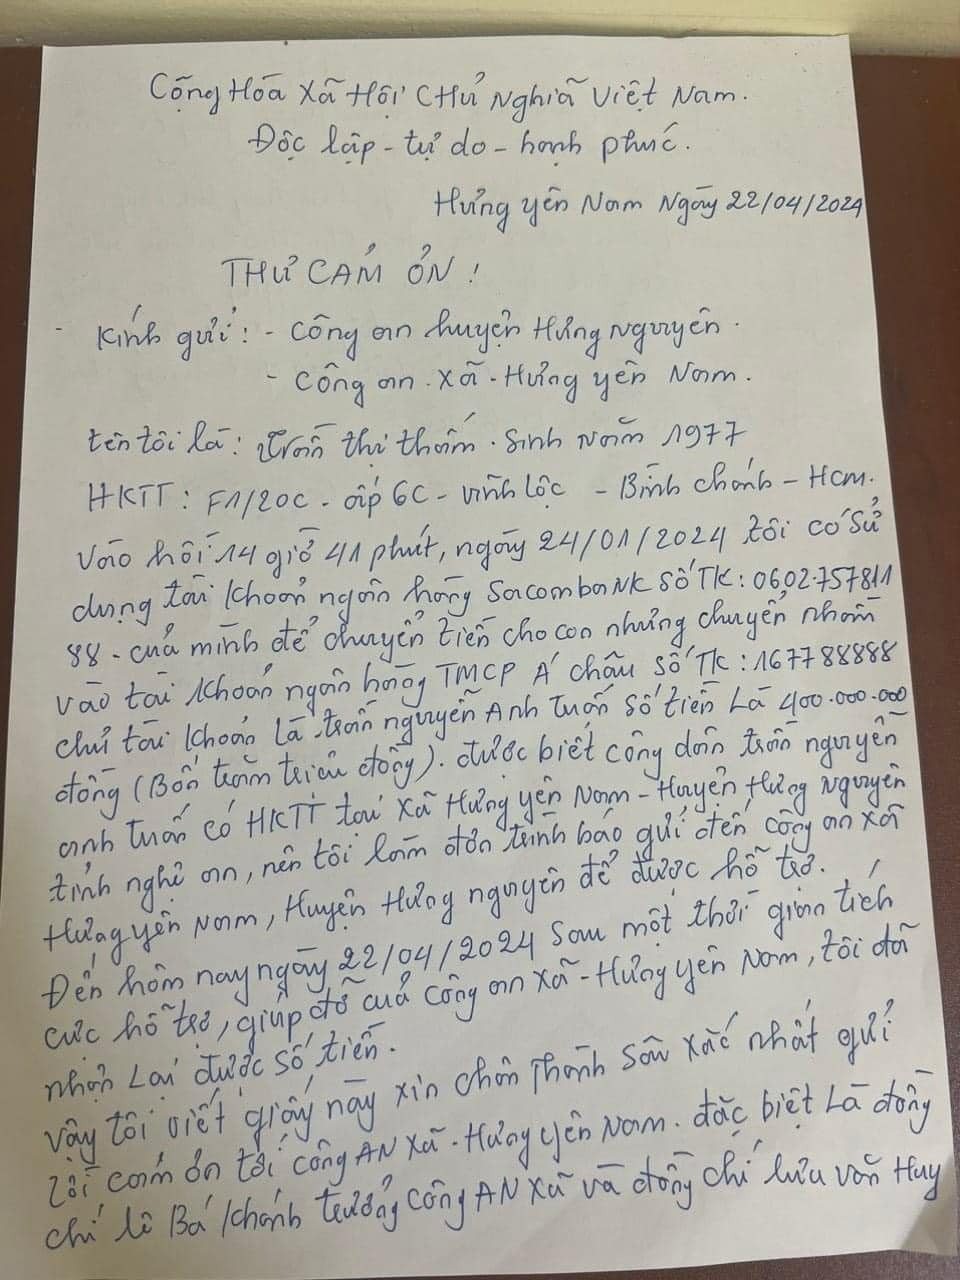 Cộng Hòa Xã Hội Chủ Nghĩa Việt Nam.
Độc lập - tự do - hạnh phúc.
Hưng yên Nam Ngày 22/04/2024
THƯ CẢM ƠN !
- Kính gửi : - Công an huyện Hưng Nguyên.
- Công an xã - Hưng yên Nam.
tên tôi là : Trần thị thắm . Sinh Năm 1977
HKTT : F1/20C - ấp 6C - vĩnh lộc - Bình chánh - Hcm.
Vào hồi 14 giờ 41 phút, ngày 24/01/2024 tôi có sử
dụng tài khoản ngân hàng Sacombank số TK : 0602.757811
88 - của mình để chuyển tiền cho con nhưng chuyển nhầm
vào tài khoản ngân hàng TMCP Á châu số TK : 167788888
chủ tài khoản là trần nguyễn Anh tuấn số tiền Là 400.000.000
đồng (Bốn trăm triệu đồng). được biết công dân trần nguyễn
anh tuấn có HKTT tại xã Hưng yên Nam - Huyện Hưng Nguyên
tỉnh nghệ an, nên tôi làm đơn trình báo gửi đến công an xã
Hưng yên Nam, Huyện Hưng nguyên để được hỗ trợ.
Đến hôm nay ngày 22/04/2024 Sau một thời gian tích
cực hỗ trợ, giúp đỡ của Công an xã - Hưng yên Nam, tôi đã
nhận Lại được số tiền.
Vậy tôi viết giấy này xin chân thành sâu xắc nhất gửi
lời cảm ơn tới công AN xã - Hưng yên Nam. đặc biệt Là đồng
chí lê Bá khánh trưởng công AN xã và đồng chí lưu văn Huy